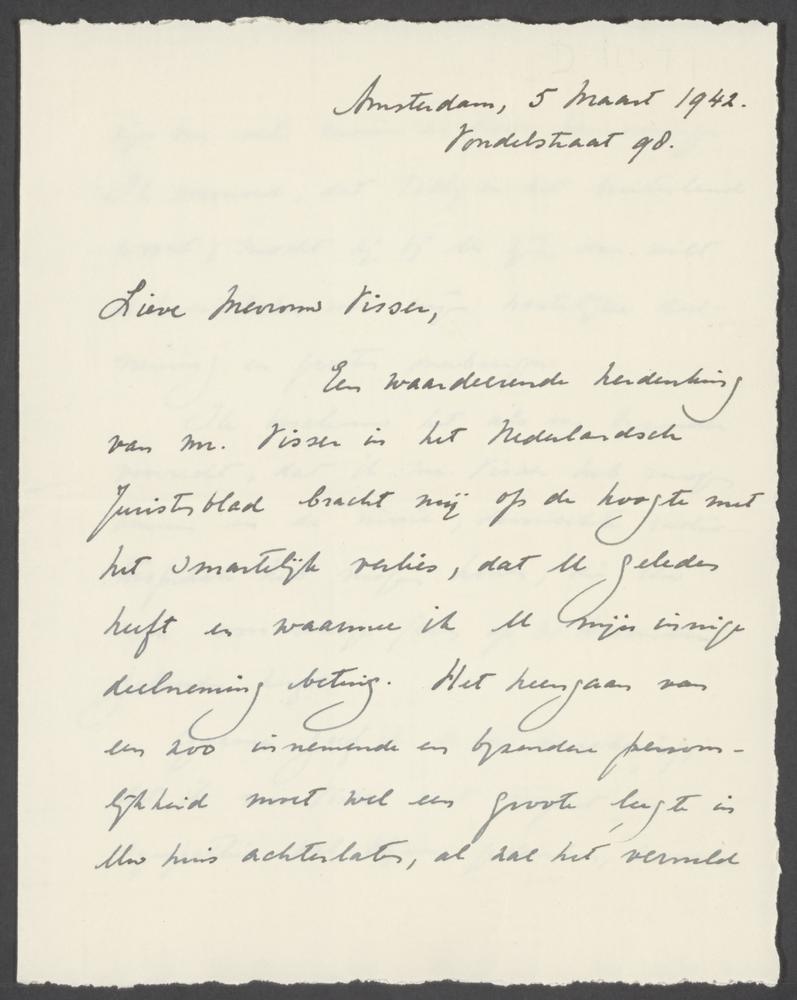 Amsterdam, 5 Maart 1942.
Vondelstraat 98.
Lieve Mevrouw Visser,
Een waardeerende herdenking
van mr. Visser in het Nederlandsch
Juristeblad bracht mij op de hoogte met
het smartelijk verlies, dat U geleden
heeft en waarmee ik U mijn innige
deelneming betuig. Het heengaan van
een zoo innemende en bijzondere persoon-
lijkheid moet wel een groote leegte in
Uw huis achterlaten, al zal het vervuld